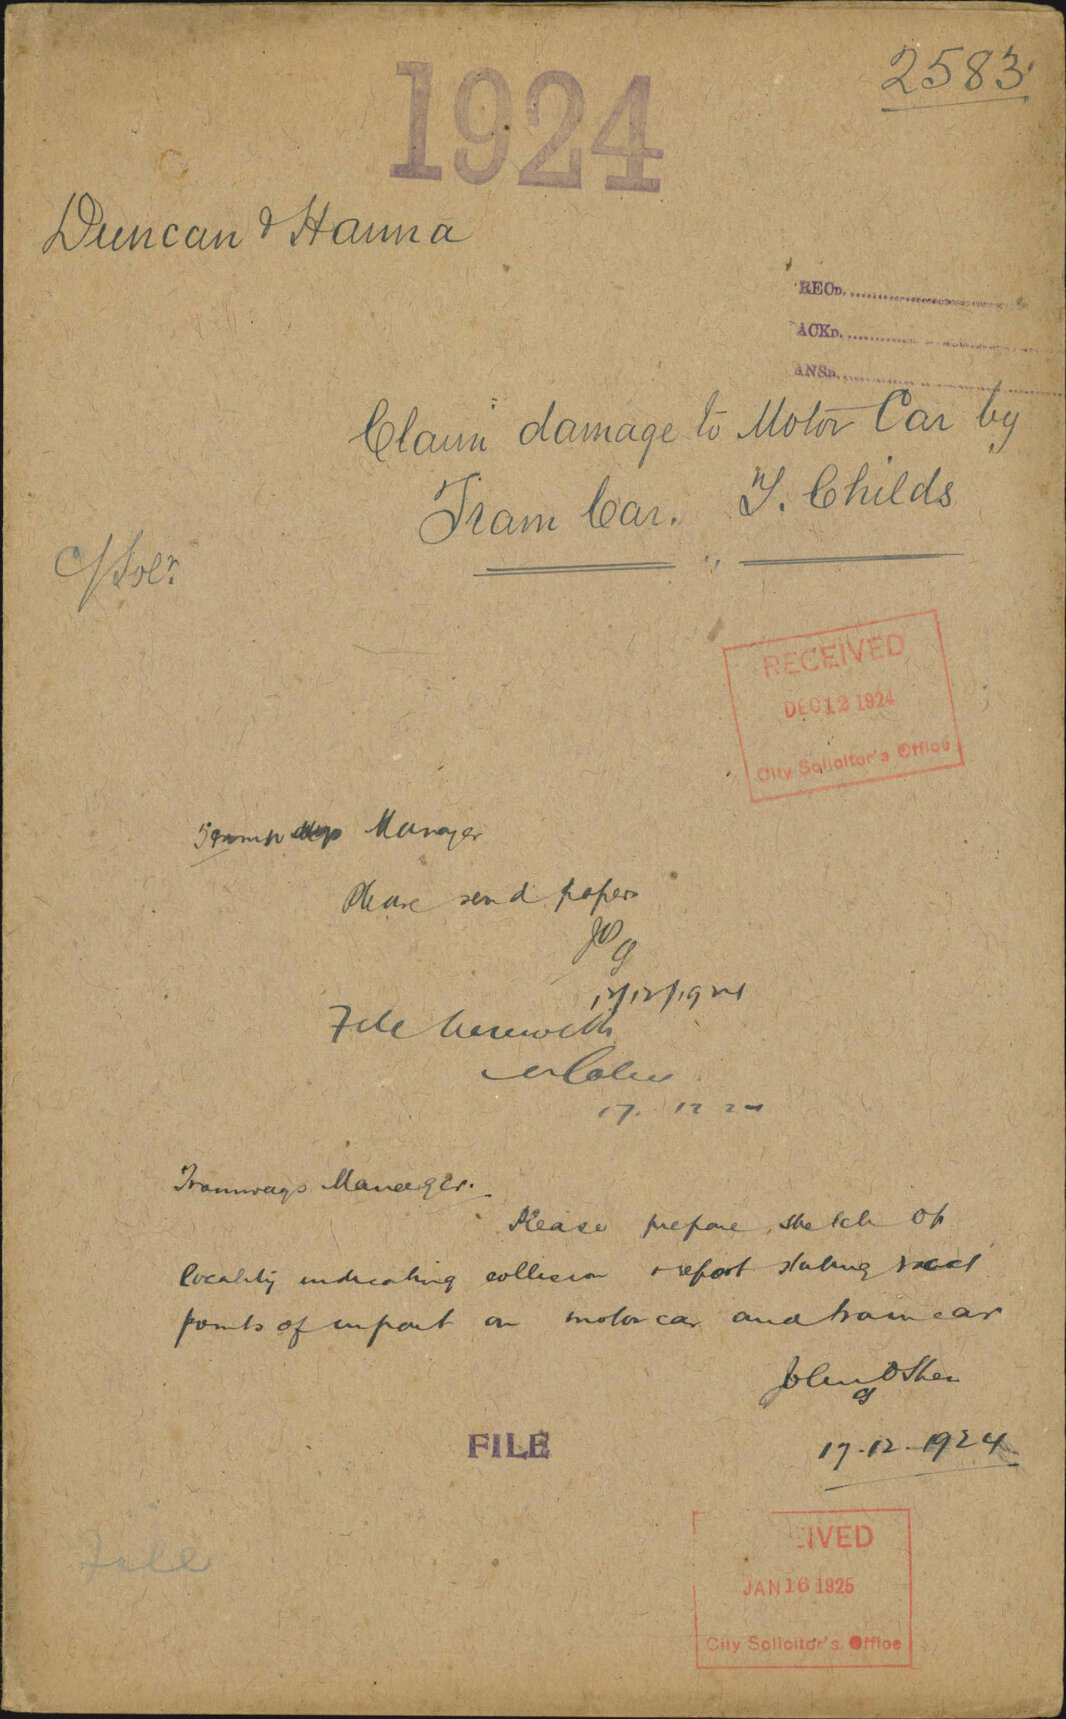 2583
1924
Duncan & Hanna
RECD.
ACKD.
ANSD.
Claim damage to Motor Car by
Tram Car. T. Childs
C/Solr.
RECEIVED
DEC 12 1924
City Solicitor's Office
Manager
Please send papers
JOS
12/12/1924
File herewith
17.12.24
Tramways Manager.
Please prepare sketch of
locality indicating collision & report stating exact
points of impact on motor car and tram car
John O'Shea
17.12.1924
FILE
File
EIVED
JAN 16 1925
City Solicitor's Office